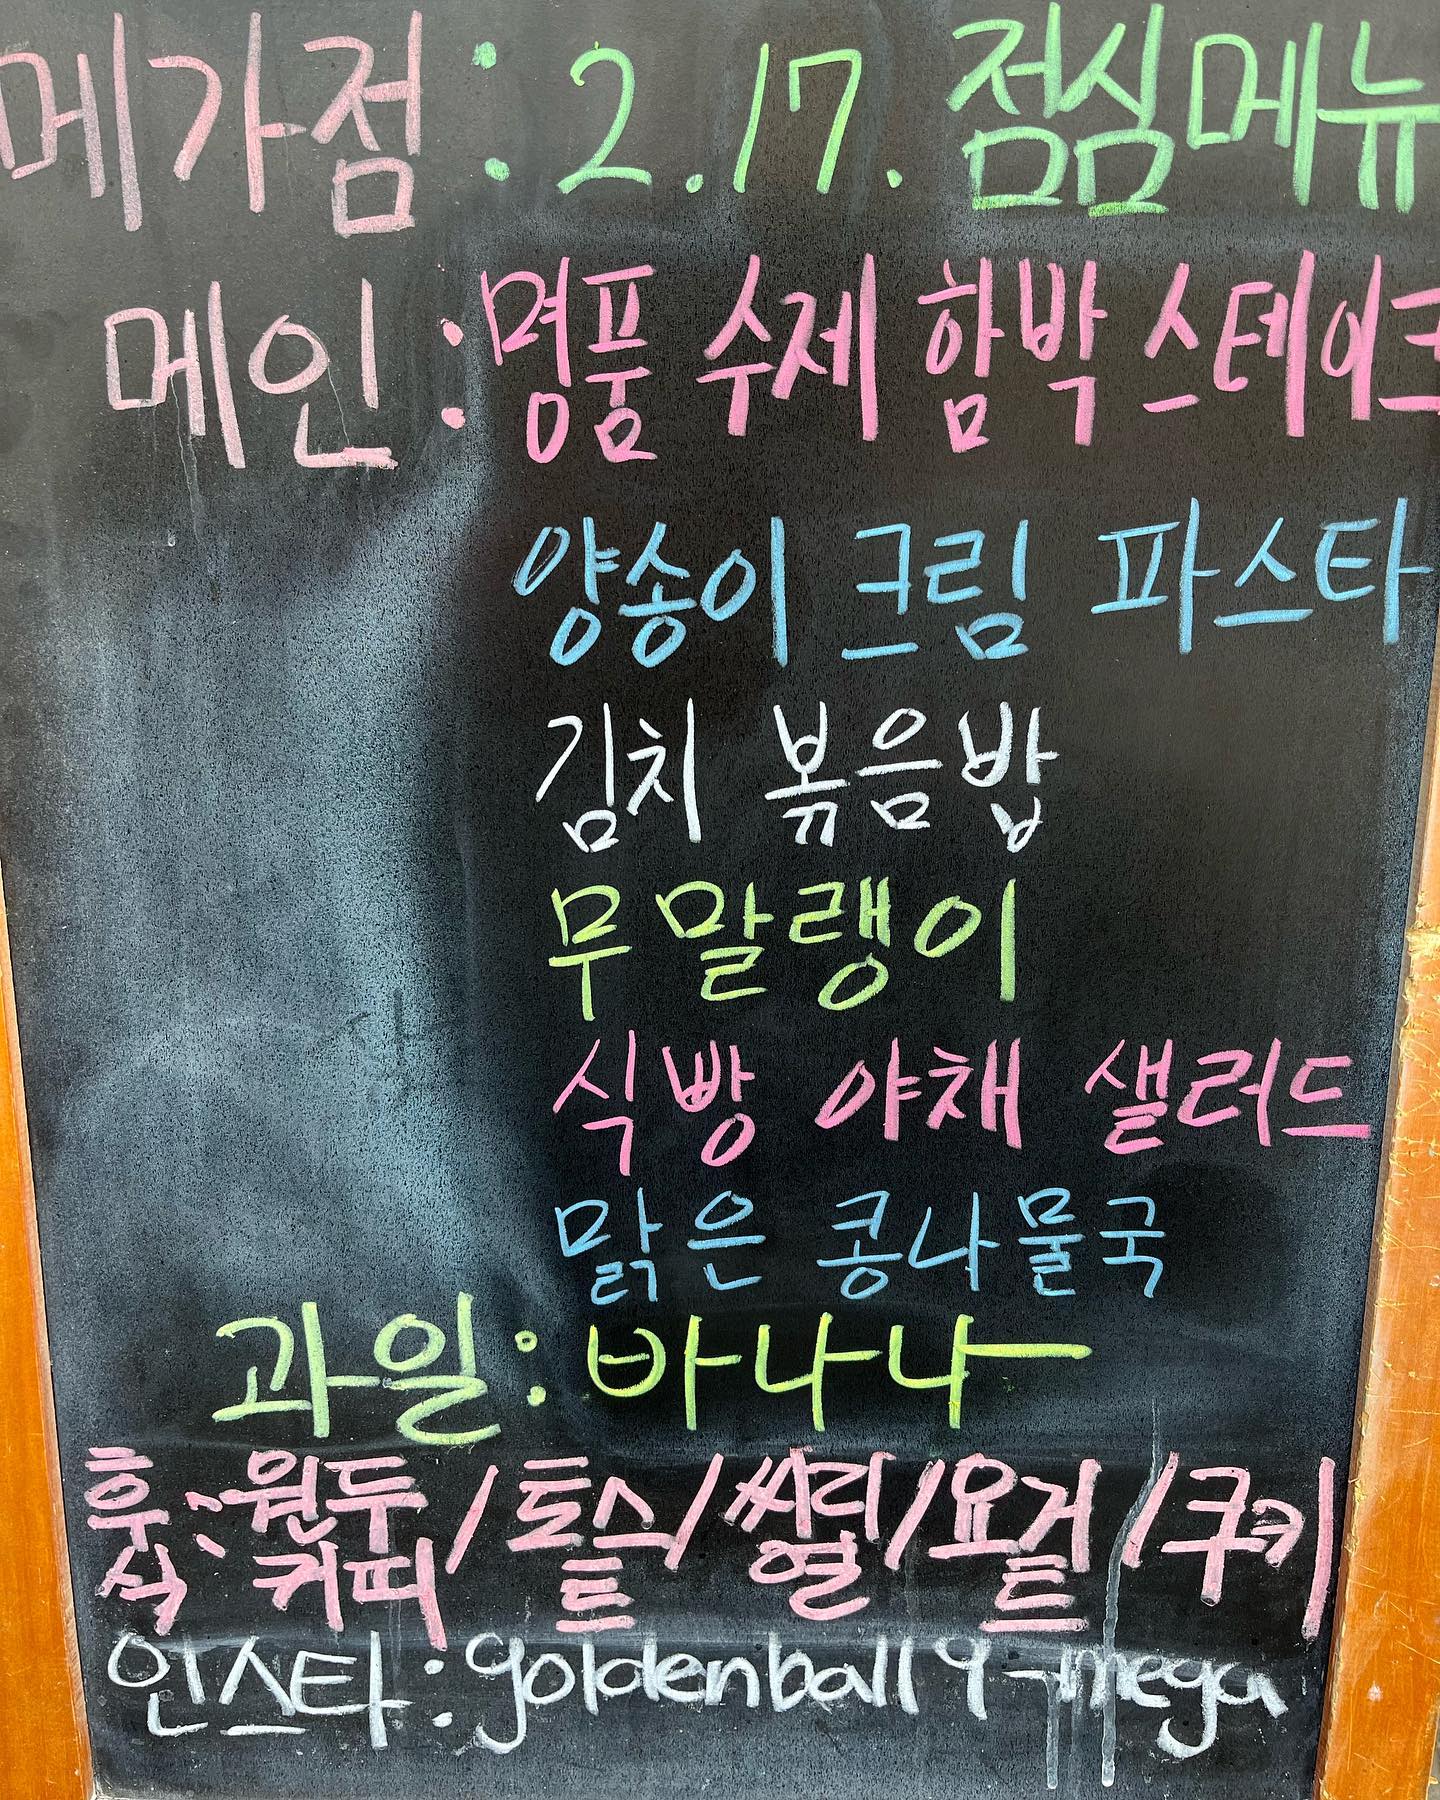 메가점 : 2.17. 점심메뉴
메인 : 명품 수제 함박 스테이크
양송이 크림 파스타
김치 볶음밥
무말랭이
식빵 야채 샐러드
맑은 콩나물국
과일 : 바나나
후식 : 원두커피 / 토스트 / 씨리얼 / 요거트 / 쿠키
인스타 : goldenball9_mega